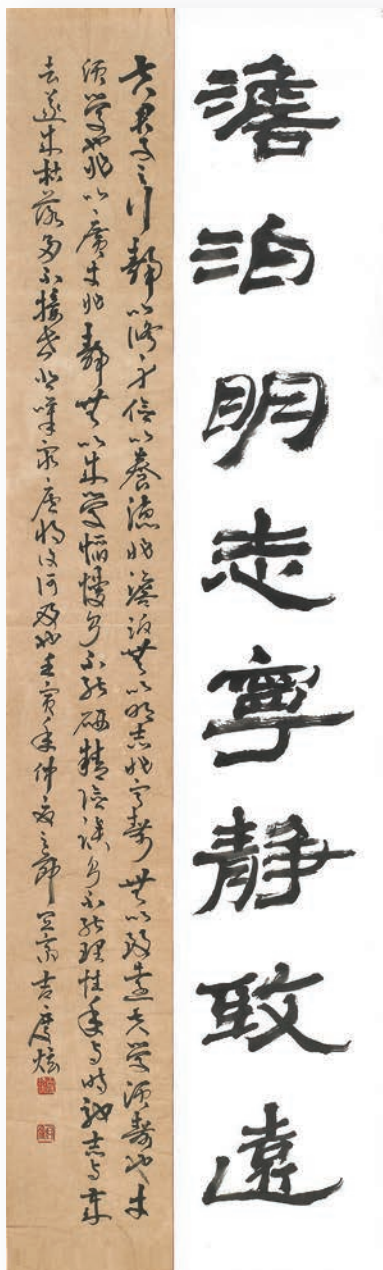 澹泊明志寧靜致遠
夫君子之行靜以修身儉以養德非澹泊無以明志非寧靜無以致遠夫學須靜也才
須學也非以廣才非靜無以成學慆慢則不能研精險躁則不能理性年与時馳志与歲
去遂成枯落多不接世悲嘆窮廬將復何及也壬寅年仲夏之節吉慶炫